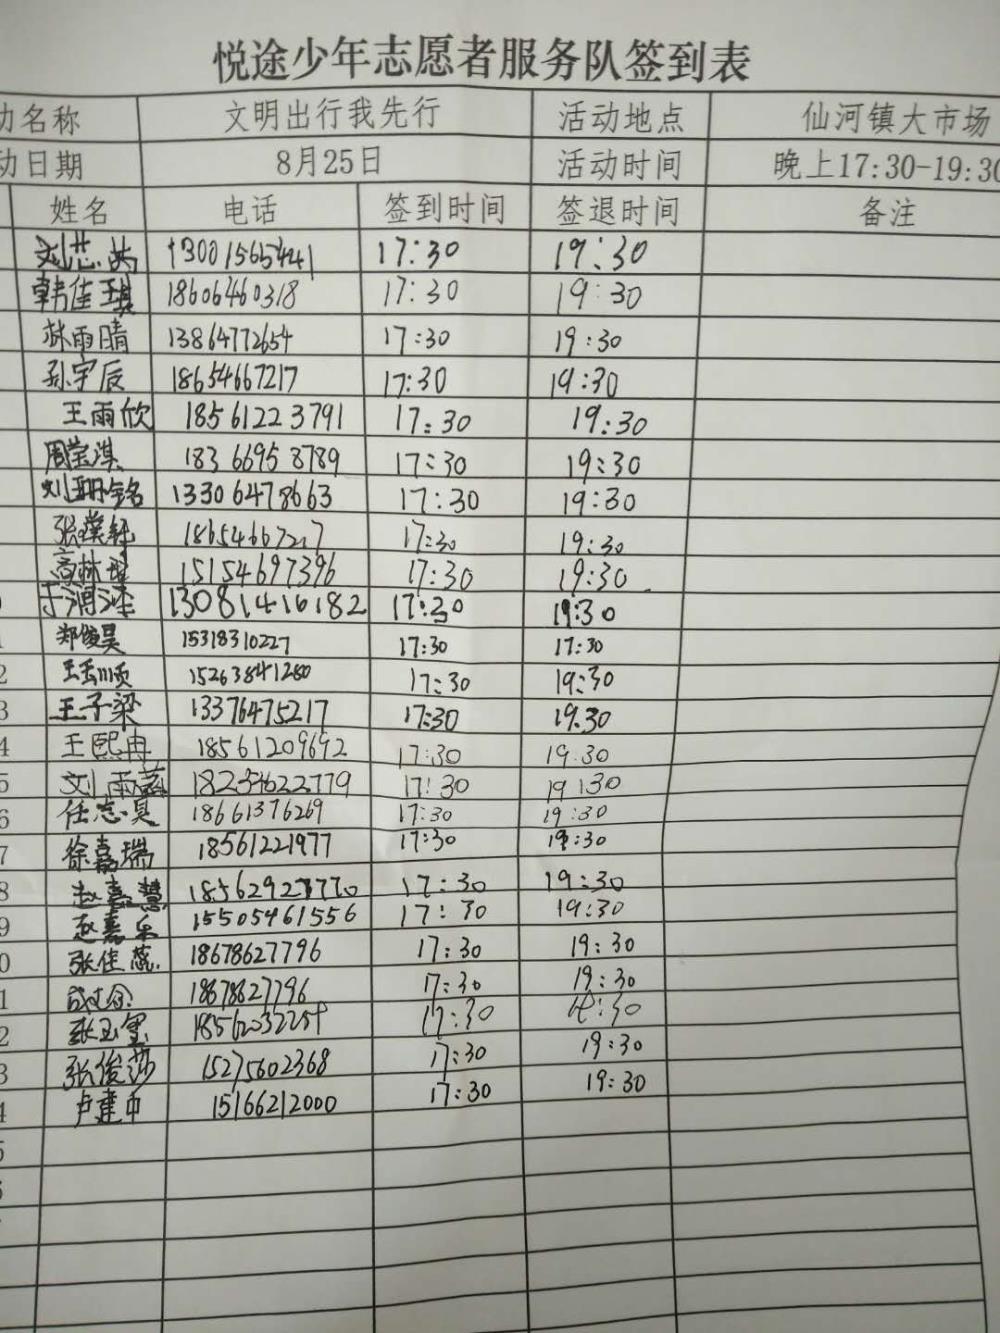 悦途少年志愿者服务队签到表
动名称 文明出行我先行 活动地点 仙河镇大市场
动日期 8月25日 活动时间 晚上17:30-19:30
姓名 电话 签到时间 签退时间 备注
刘芯 13001565441 17:30 19:30
韩佳琪 18606460318 17:30 19:30
林雨晴 13864772654 17:30 19:30
孙宇辰 18654667217 17:30 19:30
王雨欣 18561223791 17:30 19:30
周莹淇 18366958789 17:30 19:30
刘珊铭 13306478663 17:30 19:30
张 轩 18654667217 17:30 19:30
高林 15154697396 17:30 19:30
13081416182 17:30 19:30
1 郑俊昊 15318310227 17:30 17:30
2 王玉顺 15263841280 17:30 19:30
3 王子梁 13376475217 17:30 19:30
4 王熙冉 18561209692 17:30 19:30
5 刘雨 18254622779 17:30 19:30
6 任志昊 18661376269 17:30 19:30
7 徐嘉瑞 18561221977 17:30 19:30
8 赵嘉慧 17:30 19:30
9 赵嘉乐 15505461556 17:30 19:30
0 张佳蕊 18678627796 17:30 19:30
1 18678627796 17:30 19:30
2 张玉玺 17:30 19:30
3 张俊莎 15275602368 17:30 19:30
4 卢建中 15166212000 17:30 19:30
5